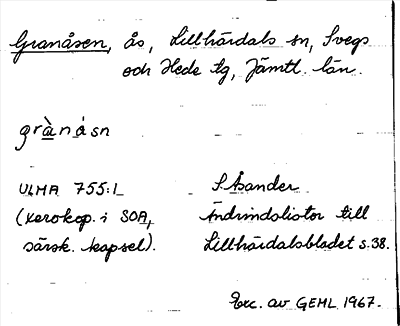 Granåsen, ås, Lillhärdals sn, Svegs
och Hede tg, Jämtl. län.
grànásn
ULMA 755:1 S. Åsander
(xerokop. i SOA, Ändrindslistor till
särsk. kapsel). Lillhärdalsbladet s. 38.
Exc. av GEHL 1967.